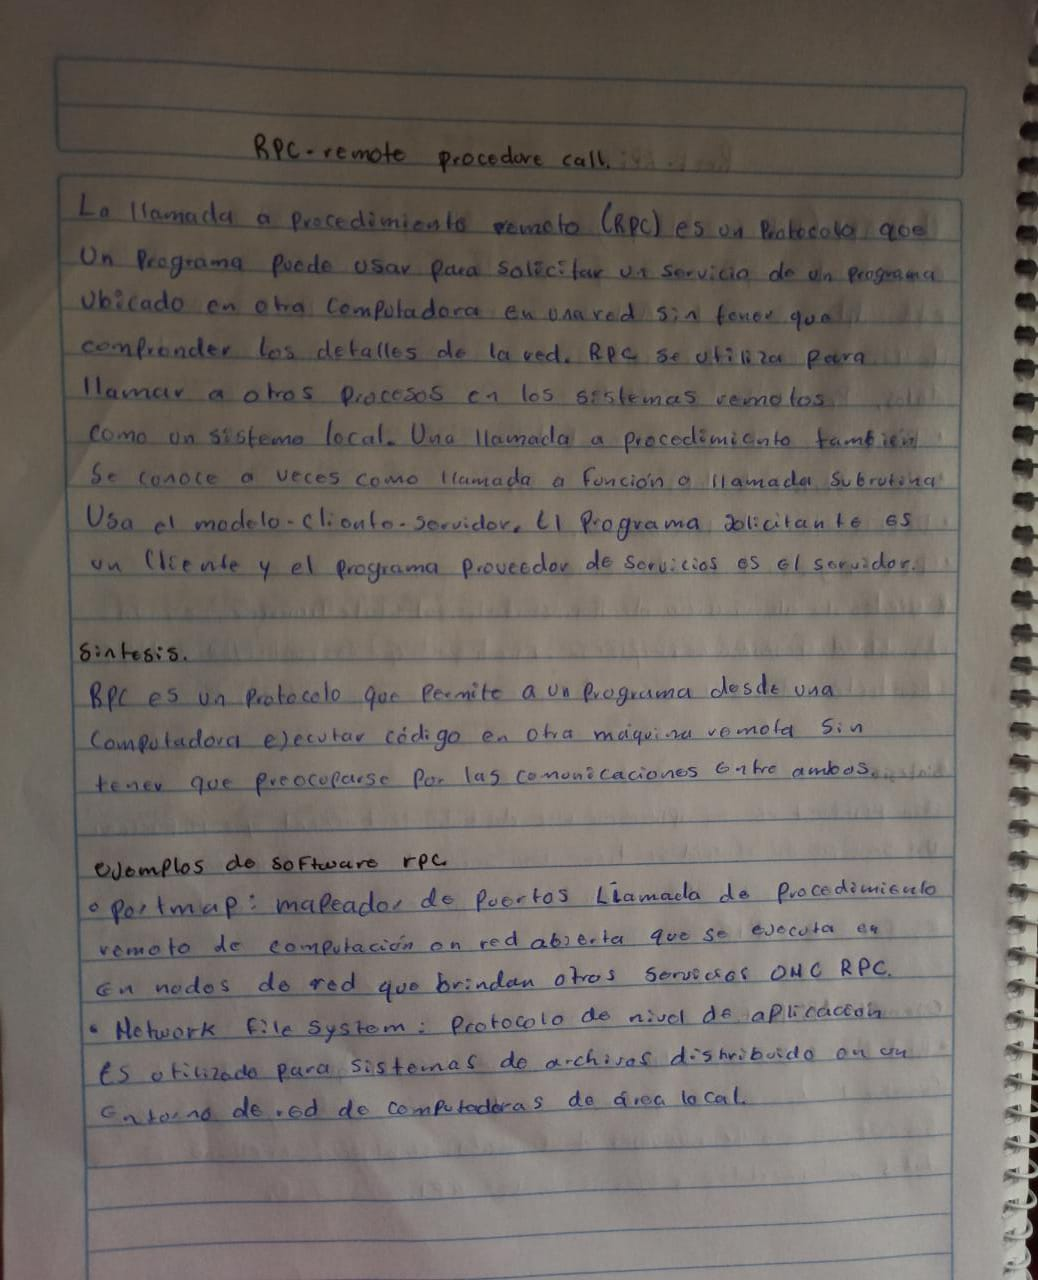 RPC-remote procedure call.
La llamada a Procedimiento remoto (RPC) es un Protocolo que
Un Programa Puede usar para solicitar un servicio de un Programa
Ubicado en otra Computadora en una red sin tener que
comprender los detalles de la red. RPC se utiliza para
llamar a otros Procesos en los sistemas remotos
como un sistema local. Una llamada a procedimiento también
Se conoce a veces como llamada a función o llamada Subrutina
Usa el modelo-cliente-servidor. El Programa solicitante es
un Cliente y el programa Proveedor de servicios es el servidor.
Síntesis.
RPC es un Protocolo que Permite a un Programa desde una
Computadora ejecutar código en otra máquina remota sin
tener que preocuparse Por las comunicaciones entre ambos.
ejemplos de software rpc
• Portmap: mapeador de Puertos Llamada de Procedimiento
remoto de computación en red abierta que se ejecuta en
en nodos de red que brindan otros servicios ONC RPC.
• Network File System: Protocolo de nivel de aplicación
es utilizado para sistemas de archivos distribuido en un
entorno de red de computadoras de área local.